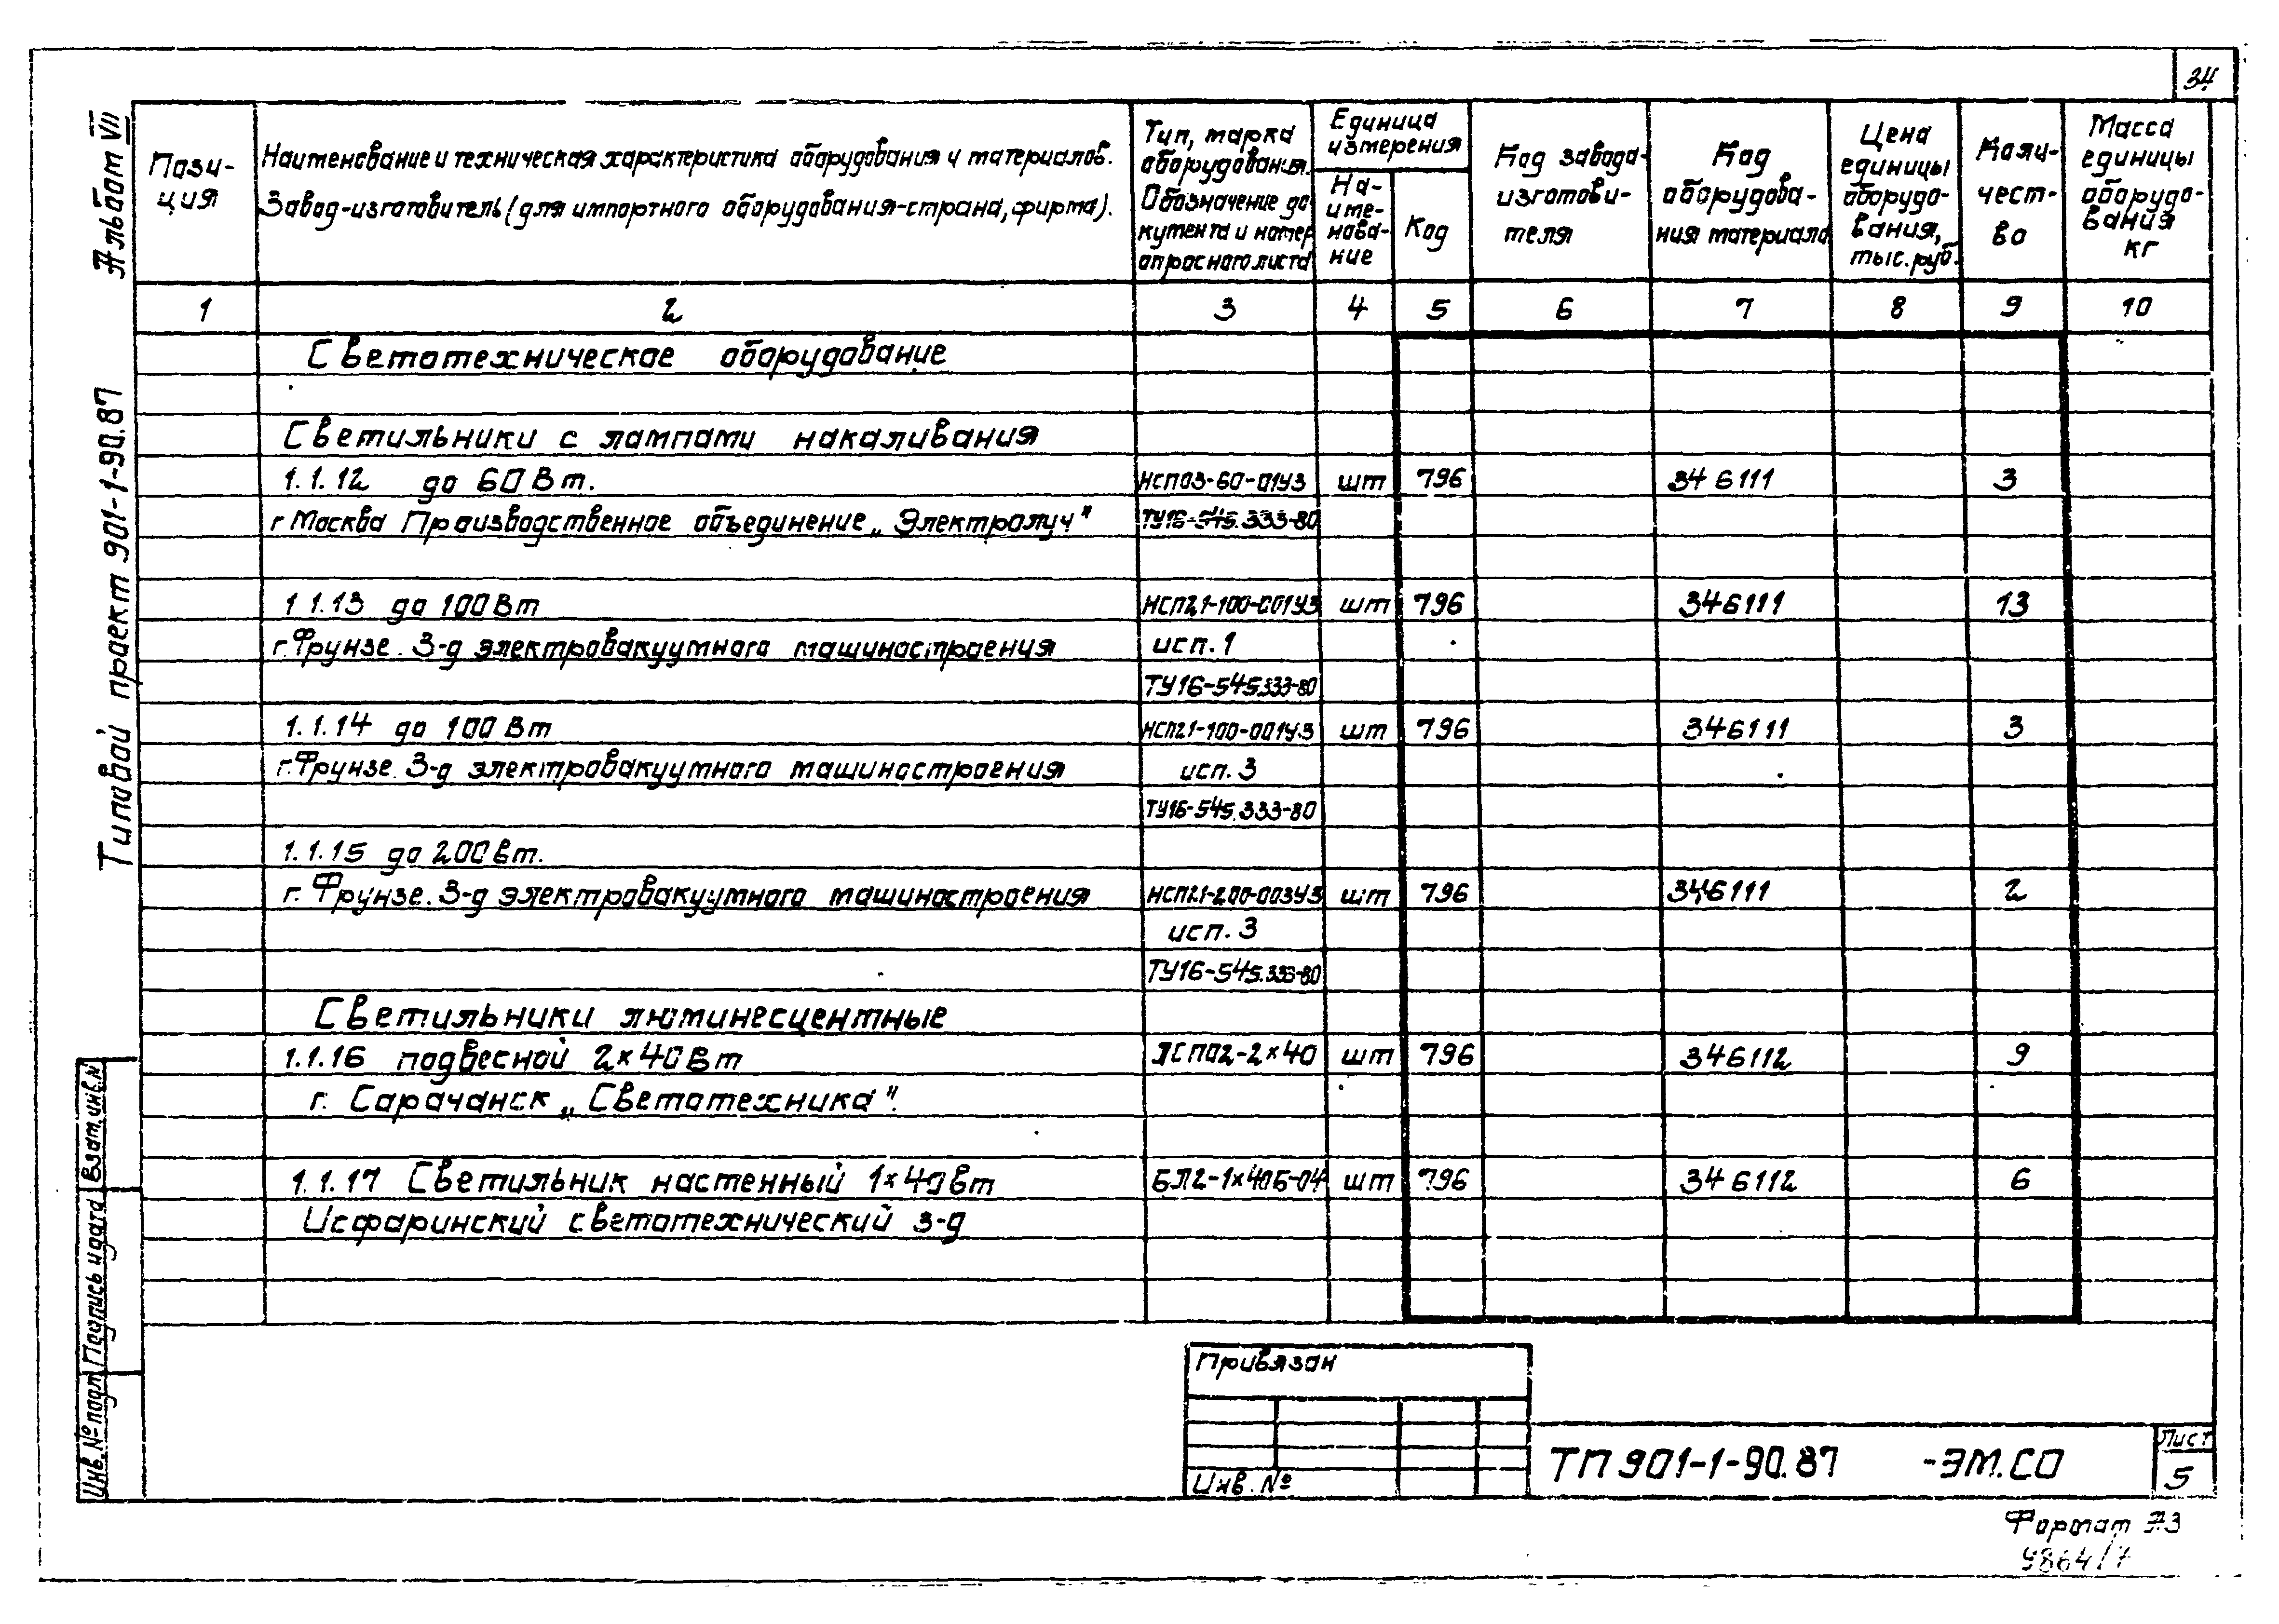 34
Альбом VII
Типовой проект 901-1-90.87
Пози-
ция
Наименование и техническая характеристика оборудования и материалов.
Завод-изготовитель (для импортного оборудования-страна, фирма).
Тип, марка
оборудования.
Обозначение до
кумента и номер
опросного листа
Единица
измерения
На-
име-
нова-
ние
Код
Код завода-
изготови-
теля
Код
оборудова-
ния материала
Цена
единицы
оборудо-
вания,
тыс.руб.
Коли-
чест-
во
Масса
единицы
оборудо-
вания
кг
1 2 3 4 5 6 7 8 9 10
Светотехническое оборудование
Светильники с лампами накаливания
1.1.12 до 60 Вт. НСП03-60-01У3 шт 796 346111 3
г Москва Производственное объединение „Электролуч" ТУ16-545.333-80
1 1.13 до 100 Вт НСП21-100-001У3 шт 796 346111 13
г.Фрунзе. З-д электровакуумного машиностроения исп. 1
ТУ16-545.333-80
1.1.14 до 100 Вт НСП21-100-001У3 шт 796 346111 3
г.Фрунзе. З-д электровакуумного машиностроения исп. 3
ТУ16-545.333-80
1.1.15 до 200 Вт.
г. Фрунзе. З-д электровакуумного машиностроения НСП21-200-003У3 шт 796 346111 2
исп. 3
ТУ16-545.333-80
Светильники люминесцентные
1.1.16 подвесной 2×40 Вт ЛСП02-2×40 шт 796 346112 9
г. Сарачанск „Светотехника".
1.1.17 Светильник настенный 1×40 Вт БЛ2-1×40Б-04 шт 796 346112 6
Исфаринский светотехнический з-д
Взам. инв. №
Подпись и дата
Инв. № подл
Привязан
Инв. №
ТП 901-1-90.87 -ЭМ.СО
Лист
5
Формат А3
9864/7